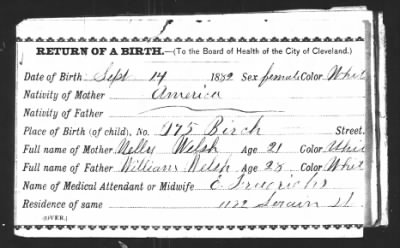 RETURN OF A BIRTH.—(To the Board of Health of the City of Cleveland.)
Date of Birth, Sept 14 1882 Sex female Color Whit
Nativity of Mother America
Nativity of Father
Place of Birth (of child), No. 175 Birch Street.
Full name of Mother Nelly Welsh Age 21 Color Whit
Full name of Father William Welsh Age 28 Color Whit
Name of Medical Attendant or Midwife C Friedrichs
Residence of same 1122 Lorain St.
(OVER.)